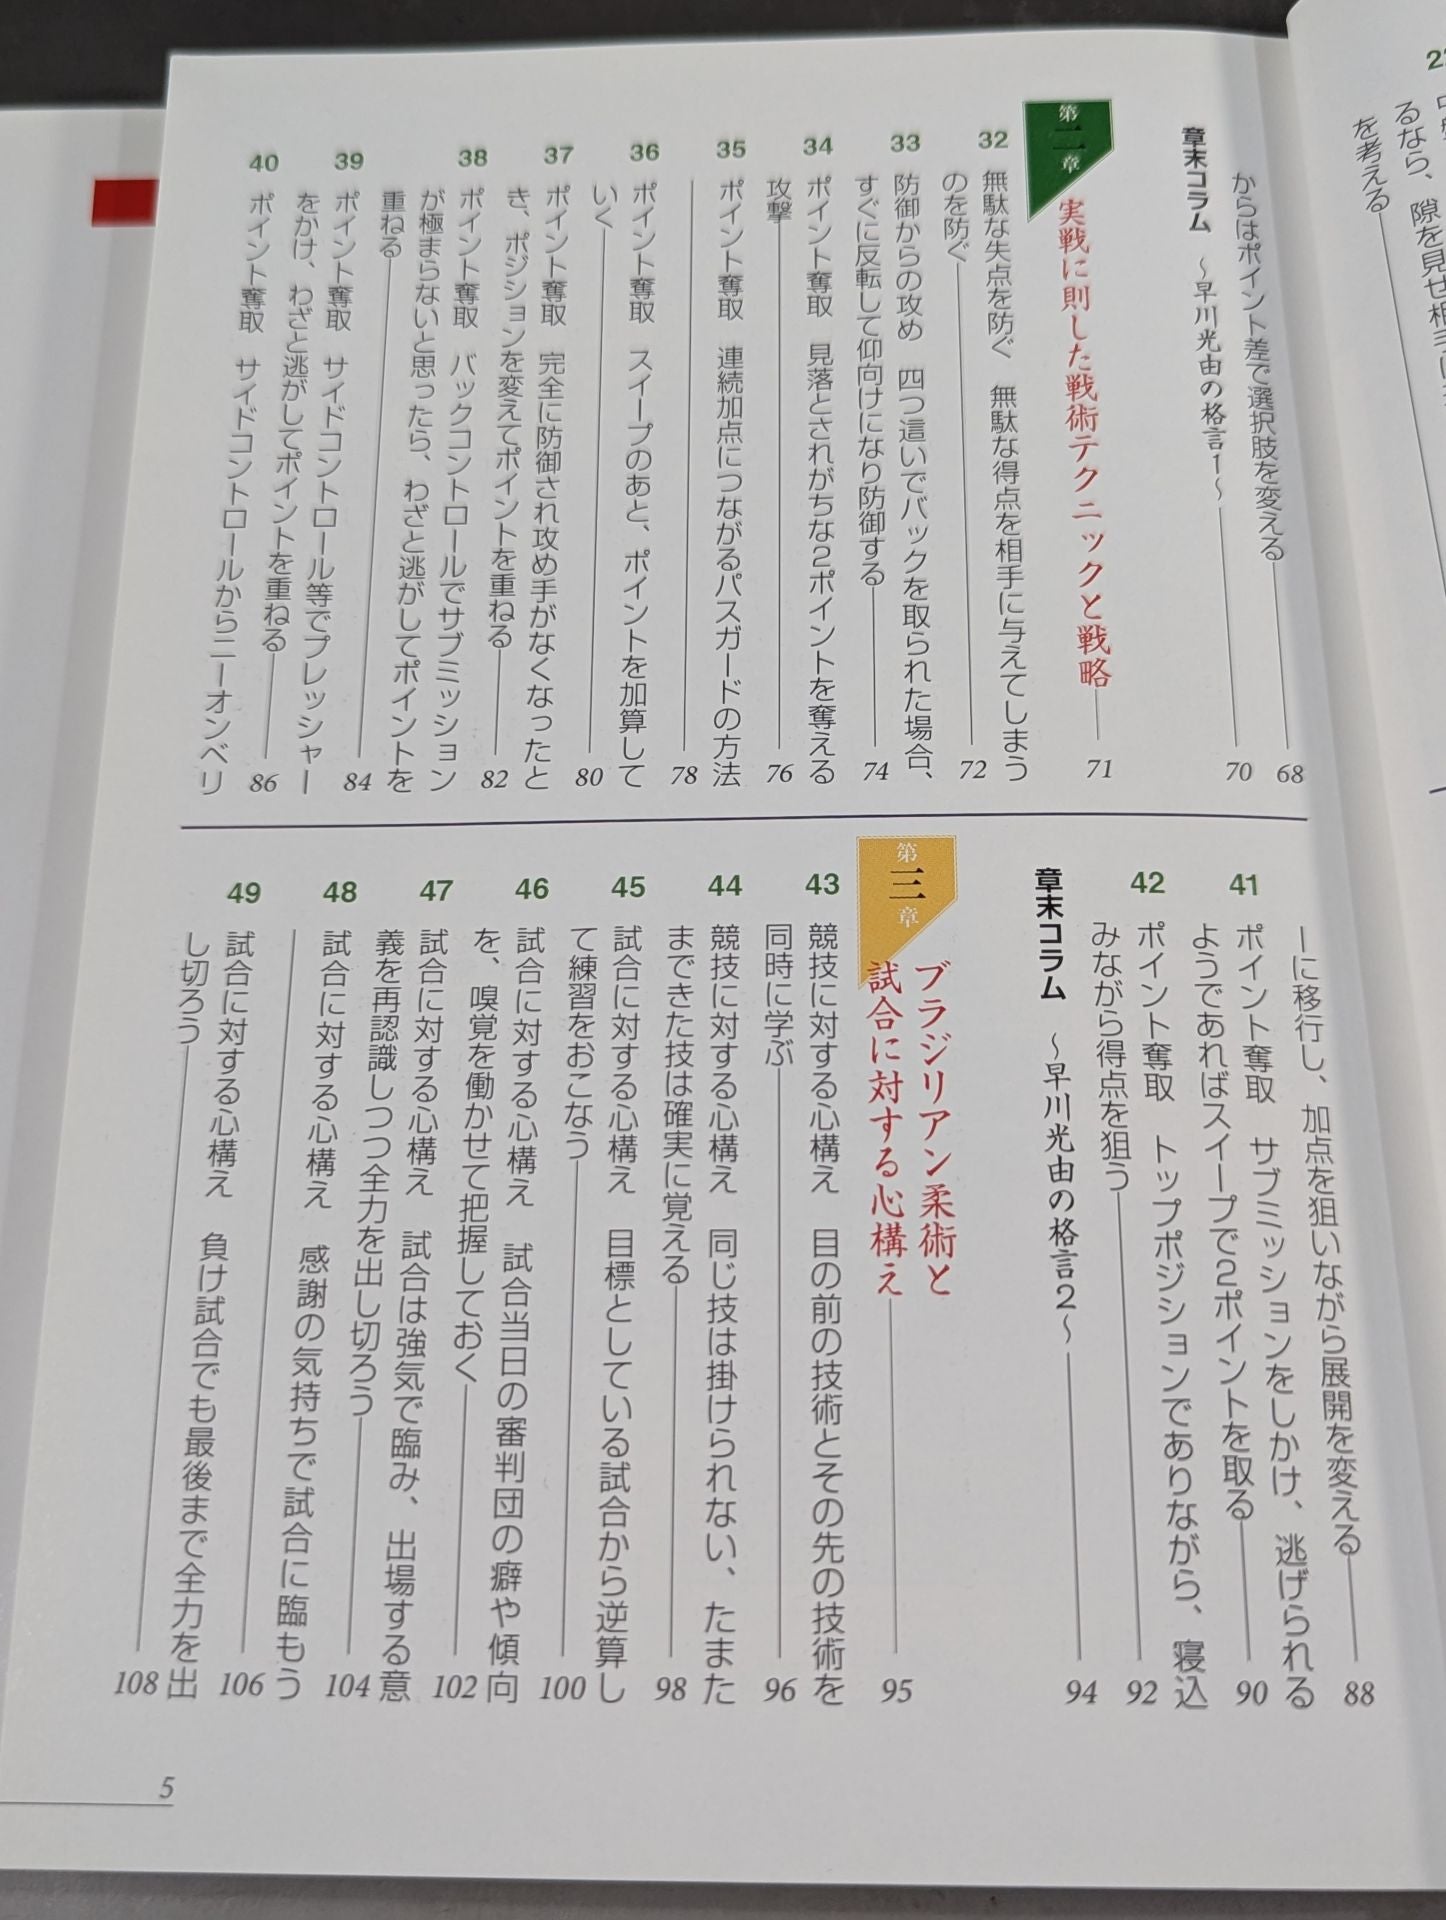 22
るなら、隙を見せ相手に
を考える
からはポイント差で選択肢を変える
68
章末コラム ～早川光由の格言1～
70
第二章
実戦に則した戦術テクニックと戦略
71
32
無駄な失点を防ぐ 無駄な得点を相手に与えてしまう
のを防ぐ
72
33
防御からの攻め 四つ這いでバックを取られた場合、
すぐに反転して仰向けになり防御する
74
34
ポイント奪取 見落とされがちな2ポイントを奪える
攻撃
76
35
ポイント奪取 連続加点につながるパスガードの方法
78
36
ポイント奪取 スイープのあと、ポイントを加算して
いく
80
37
ポイント奪取 完全に防御され攻め手がなくなったと
き、ポジションを変えてポイントを重ねる
82
38
ポイント奪取 バックコントロールでサブミッション
が極まらないと思ったら、わざと逃がしてポイントを
重ねる
84
39
ポイント奪取 サイドコントロール等でプレッシャー
をかけ、わざと逃がしてポイントを重ねる
86
40
ポイント奪取 サイドコントロールからニーオンベリ
ーに移行し、加点を狙いながら展開を変える
88
41
ポイント奪取 サブミッションをしかけ、逃げられる
ようであればスイープで2ポイントを取る
90
42
ポイント奪取 トップポジションでありながら、寝込
みながら得点を狙う
92
章末コラム ～早川光由の格言2～
94
第三章
ブラジリアン柔術と
試合に対する心構え
95
43
競技に対する心構え 目の前の技術とその先の技術を
同時に学ぶ
96
44
競技に対する心構え 同じ技は掛けられない、たまた
まできた技は確実に覚える
98
45
試合に対する心構え 目標としている試合から逆算し
て練習をおこなう
100
46
試合に対する心構え 試合当日の審判団の癖や傾向
を、嗅覚を働かせて把握しておく
102
47
試合に対する心構え 試合は強気で臨み、出場する意
義を再認識しつつ全力を出し切ろう
104
48
試合に対する心構え 感謝の気持ちで試合に臨もう
106
49
試合に対する心構え 負け試合でも最後まで全力を出
し切ろう
108
5